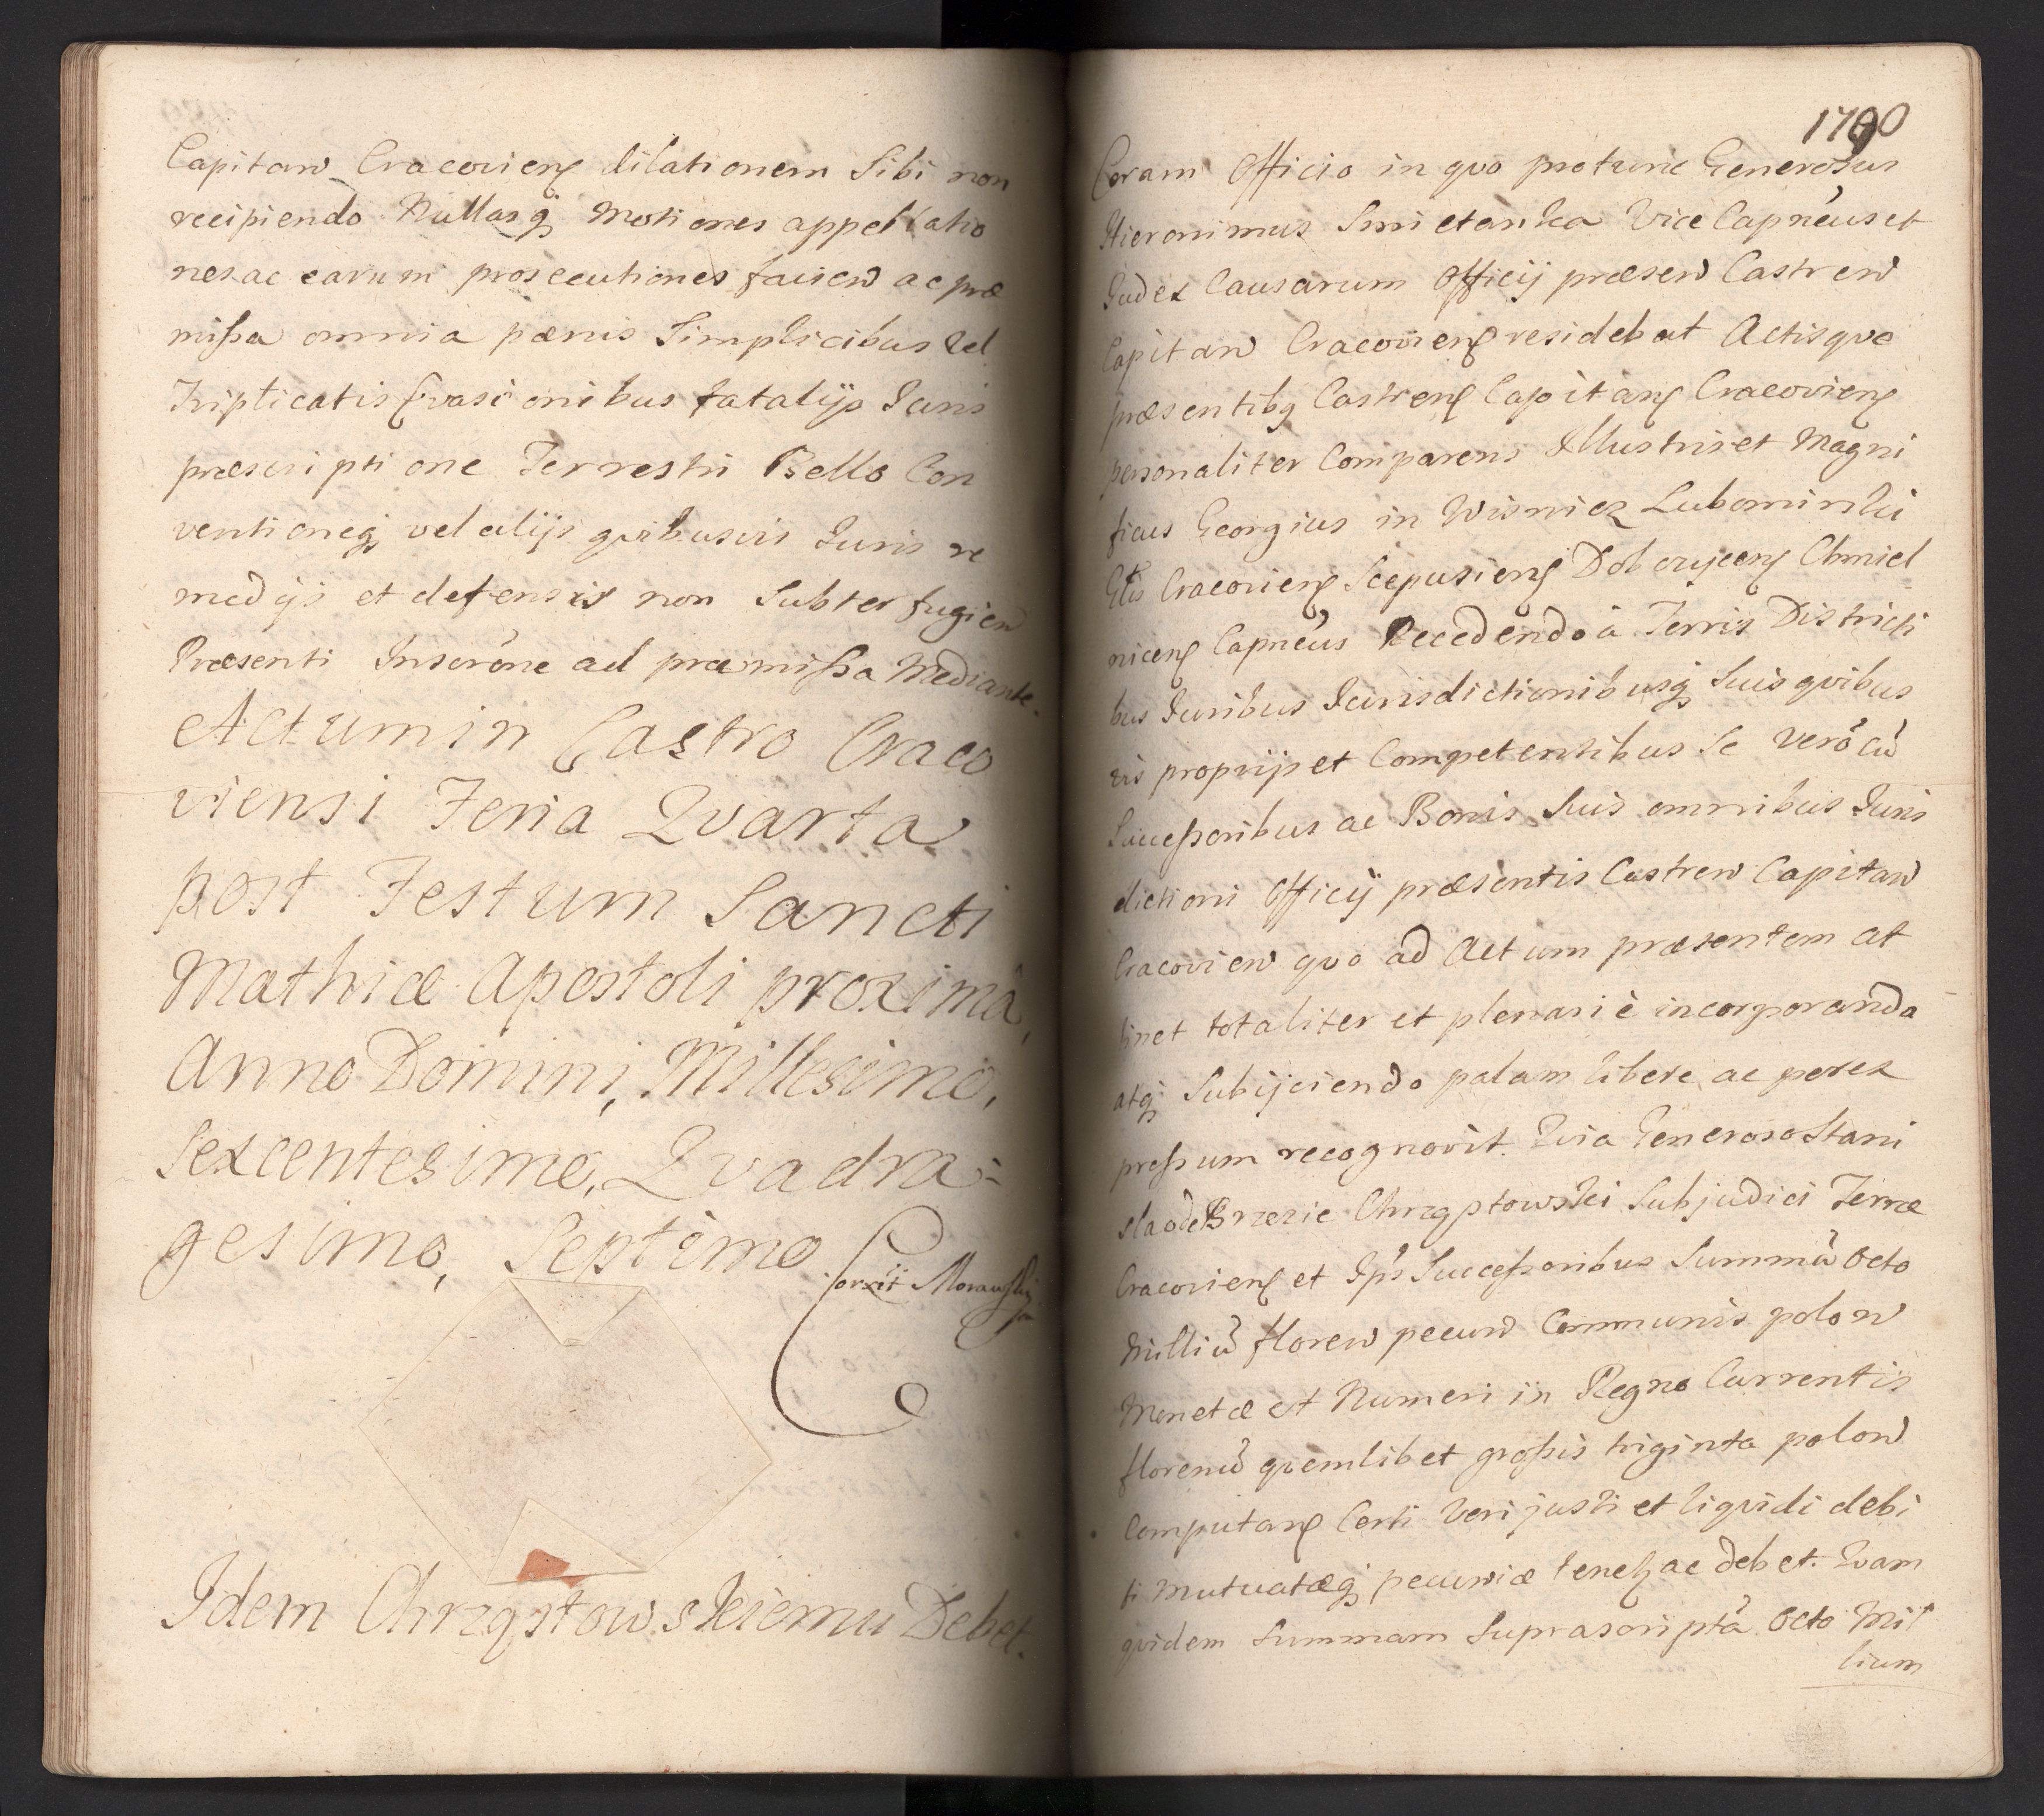 Capitan Cracovieñ dilationem Sibi non
recipiendo Nullasq; Motiones appellatio
nes ac earum prosecutiones faciend ac præ
missa omnia pænis Simplicibus vel
Triplicatis Evasionibus fatalijs Juris
præscriptione Terrestri Bello Con
ventioneq; vel alijs quibusvis Juris re
medijs et defensis non Subterfugien
Præsenti Inscr̃óne ad præmissa Mediante.
Actum in Castro Craco
viensi Feria Quarta
post Festum Sancti
Mathiæ Apostoli proxima,
Anno Domini, Millesimo,
Sexcentesimo, Quadra=
gesimo, Septimo
Idem Chrząstowskiemu Debet.
1790
Coram Officio in quo protunc Generosus
Hieronimus Smietanka Vice Capneus et
Judex Causarum Officij præsen Castren
Capitan Cracovien residebat Actisque
præsentibq Castren Capitan Cracovien
personaliter Comparens Illustris et Magni
ficus Georgius in Wisnicz Lubomirski
Gñlis Cracovien Scepusien Dobczycen Chmiel
nicen Capneus Recedendo à Terris Districti
bus Juribus Jurisdictionibusq; Suis quibus
vis proprijs et Competentibus Se Verò cũ
Successoribus ac Bonis Suis omnibus Juris
dictioni Officij præsentis Castren Capitan
Cracovien quo ad Actum præsentem at
tinet totaliter et plenariè incorporando
atq; Subijciendo palam libere ac perex
pressum recognovit. Quia Generoso Stani
slao de Brzezie Chrząstowski Subjudici Terræ
Cracovien et Ips Successoribus Summã Octo
Milliũ floren pecun Communis polon
Monetæ et Numeri in Regno Currentis
florenũ quemlibet grossis triginta polon
Computan Certi Veri justi et liquidi debi
ti Mutuatæq; pecuniæ tenetq ac debet. Quam
quidem Summam Suprascriptã Octo Mil
lium